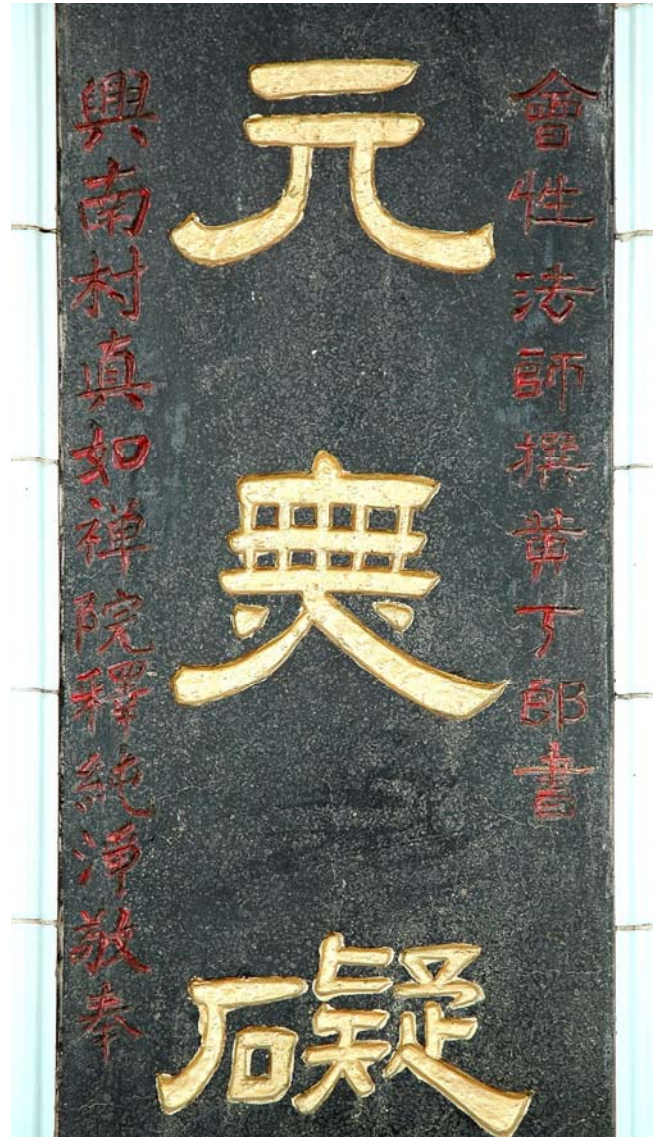 會性法師撰黃丁郎書
元無礙
興南村真如禪院釋純淨敬奉